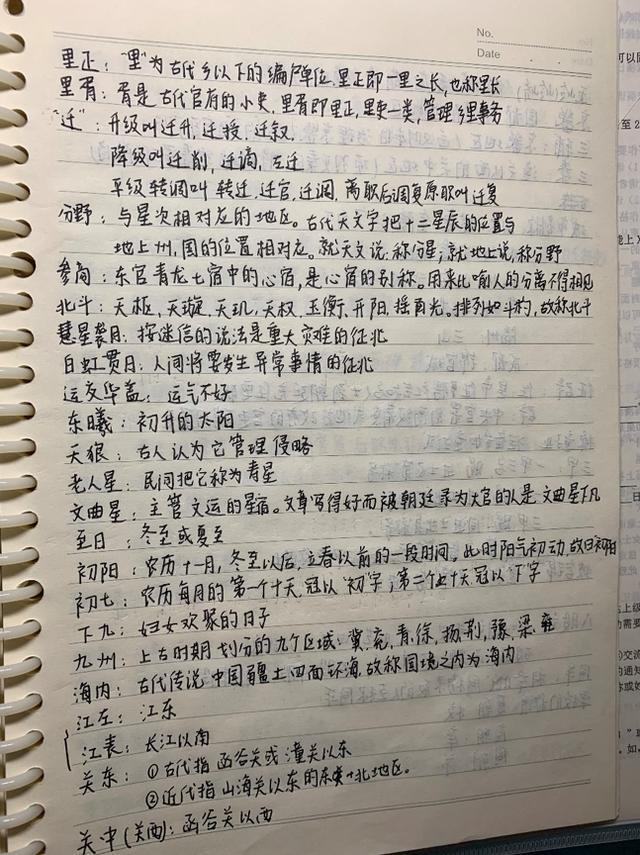 No.
Date
里正：“里”为古代乡以下的编户单位.里正即一里之长，也称里长
里胥：胥是古代官府的小吏，里胥即里正，里吏一类，管理乡里事务
“迁”：升级叫迁升，迁授，迁叙.
降级叫迁削，迁谪，左迁
平级转调叫转迁，迁官，迁调，离职后调复原职叫迁复
分野：与星次相对应的地区。古代天文字把十二星辰的位置与
地上州，国的位置相对应。就天文说，称分星；就地上说，称分野
参商：东官青龙七宿中的心宿，是心宿的别称。用来比喻人的分离不得相见
北斗：天枢，天璇，天玑，天权，玉衡，开阳，摇光。排列如斗杓，故称北斗
慧星袭月：按迷信的说法是重大灾难的征兆
白虹贯日：人间将要发生异常事情的征兆
运交华盖：运气不好
东曦：初升的太阳
天狼：古人认为它管理侵略
老人星：民间把它称为寿星
文曲星：主管文运的星宿。文章写得好而被朝廷录为大官的人是文曲星下凡
至日：冬至或夏至
初阳：农历十一月，冬至以后，立春以前的一段时间。此时阳气初动，故曰初阳
初七：农历每月的第一个十天冠以“初”字；第二个十天冠以“下”字
下九：妇女欢聚的日子
九州：上古时期划分的九个区域：冀，兖，青，徐，扬，荆，豫，梁，雍
海内：古代传说中国疆土四面环海，故称国境之内为海内
江左：江东
江表：长江以南
关东：①古代指函谷关或潼关以东
②近代指山海关以东的东北地区。
关中(关西)：函谷关以西